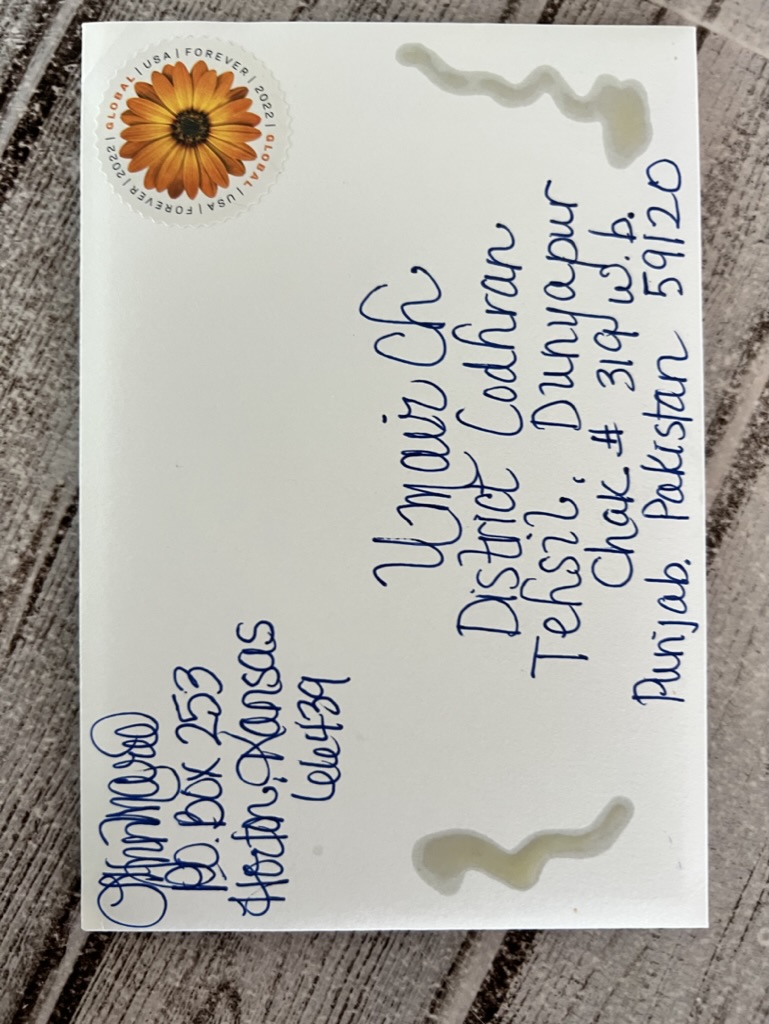 P.O. Box 253
Horton, Kansas
66439
GLOBAL | USA | FOREVER | 2022 | GLOBAL | USA | FOREVER | 2022 |
Umair Ch
District Lodhran
Tehsil. Dunyapur
Chak # 319 w.b.
Punjab. Pakistan 59120